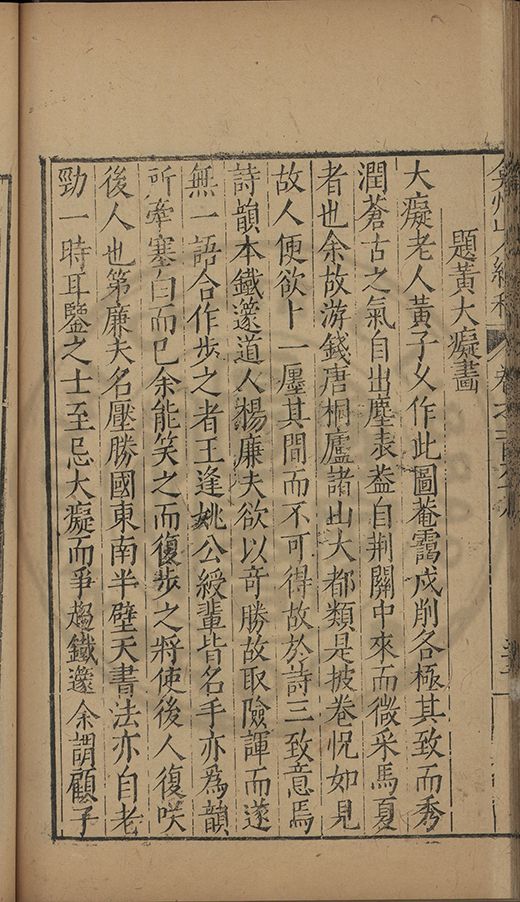 弇州山人續稿
卷之一百六
題黃大癡畫
大癡老人黃子久作此圖菴靄戍削各極其致而秀
潤蒼古之氣自出塵表葢自荆關中來而微采馬夏
者也余故游錢唐桐廬諸山大都類是披卷怳如見
故人便欲卜一廛其間而不可得故於詩三致意焉
詩韻本鐵邃道人楊廉夫欲以奇勝故取險諢而遂
無一語合作步之者王逢姚公綬輩皆名手亦為韻
所牽塞白而已余能笑之而復步之將使後人復咲
後人也第廉夫名壓勝國東南半壁天書法亦自老
勁一時耳鑒之士至忌大癡而爭趨鐵邃余謂顧子